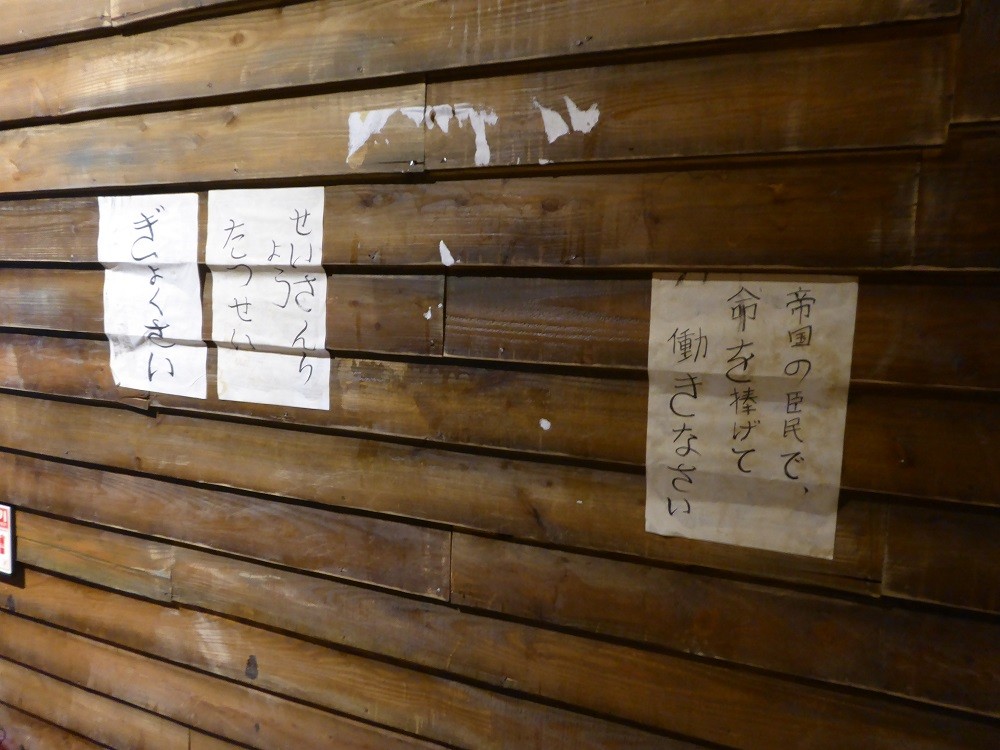 帝国の臣民で、
命を捧げて
働きなさい
せいさんり
ょう
たつせい
ぎょくさい